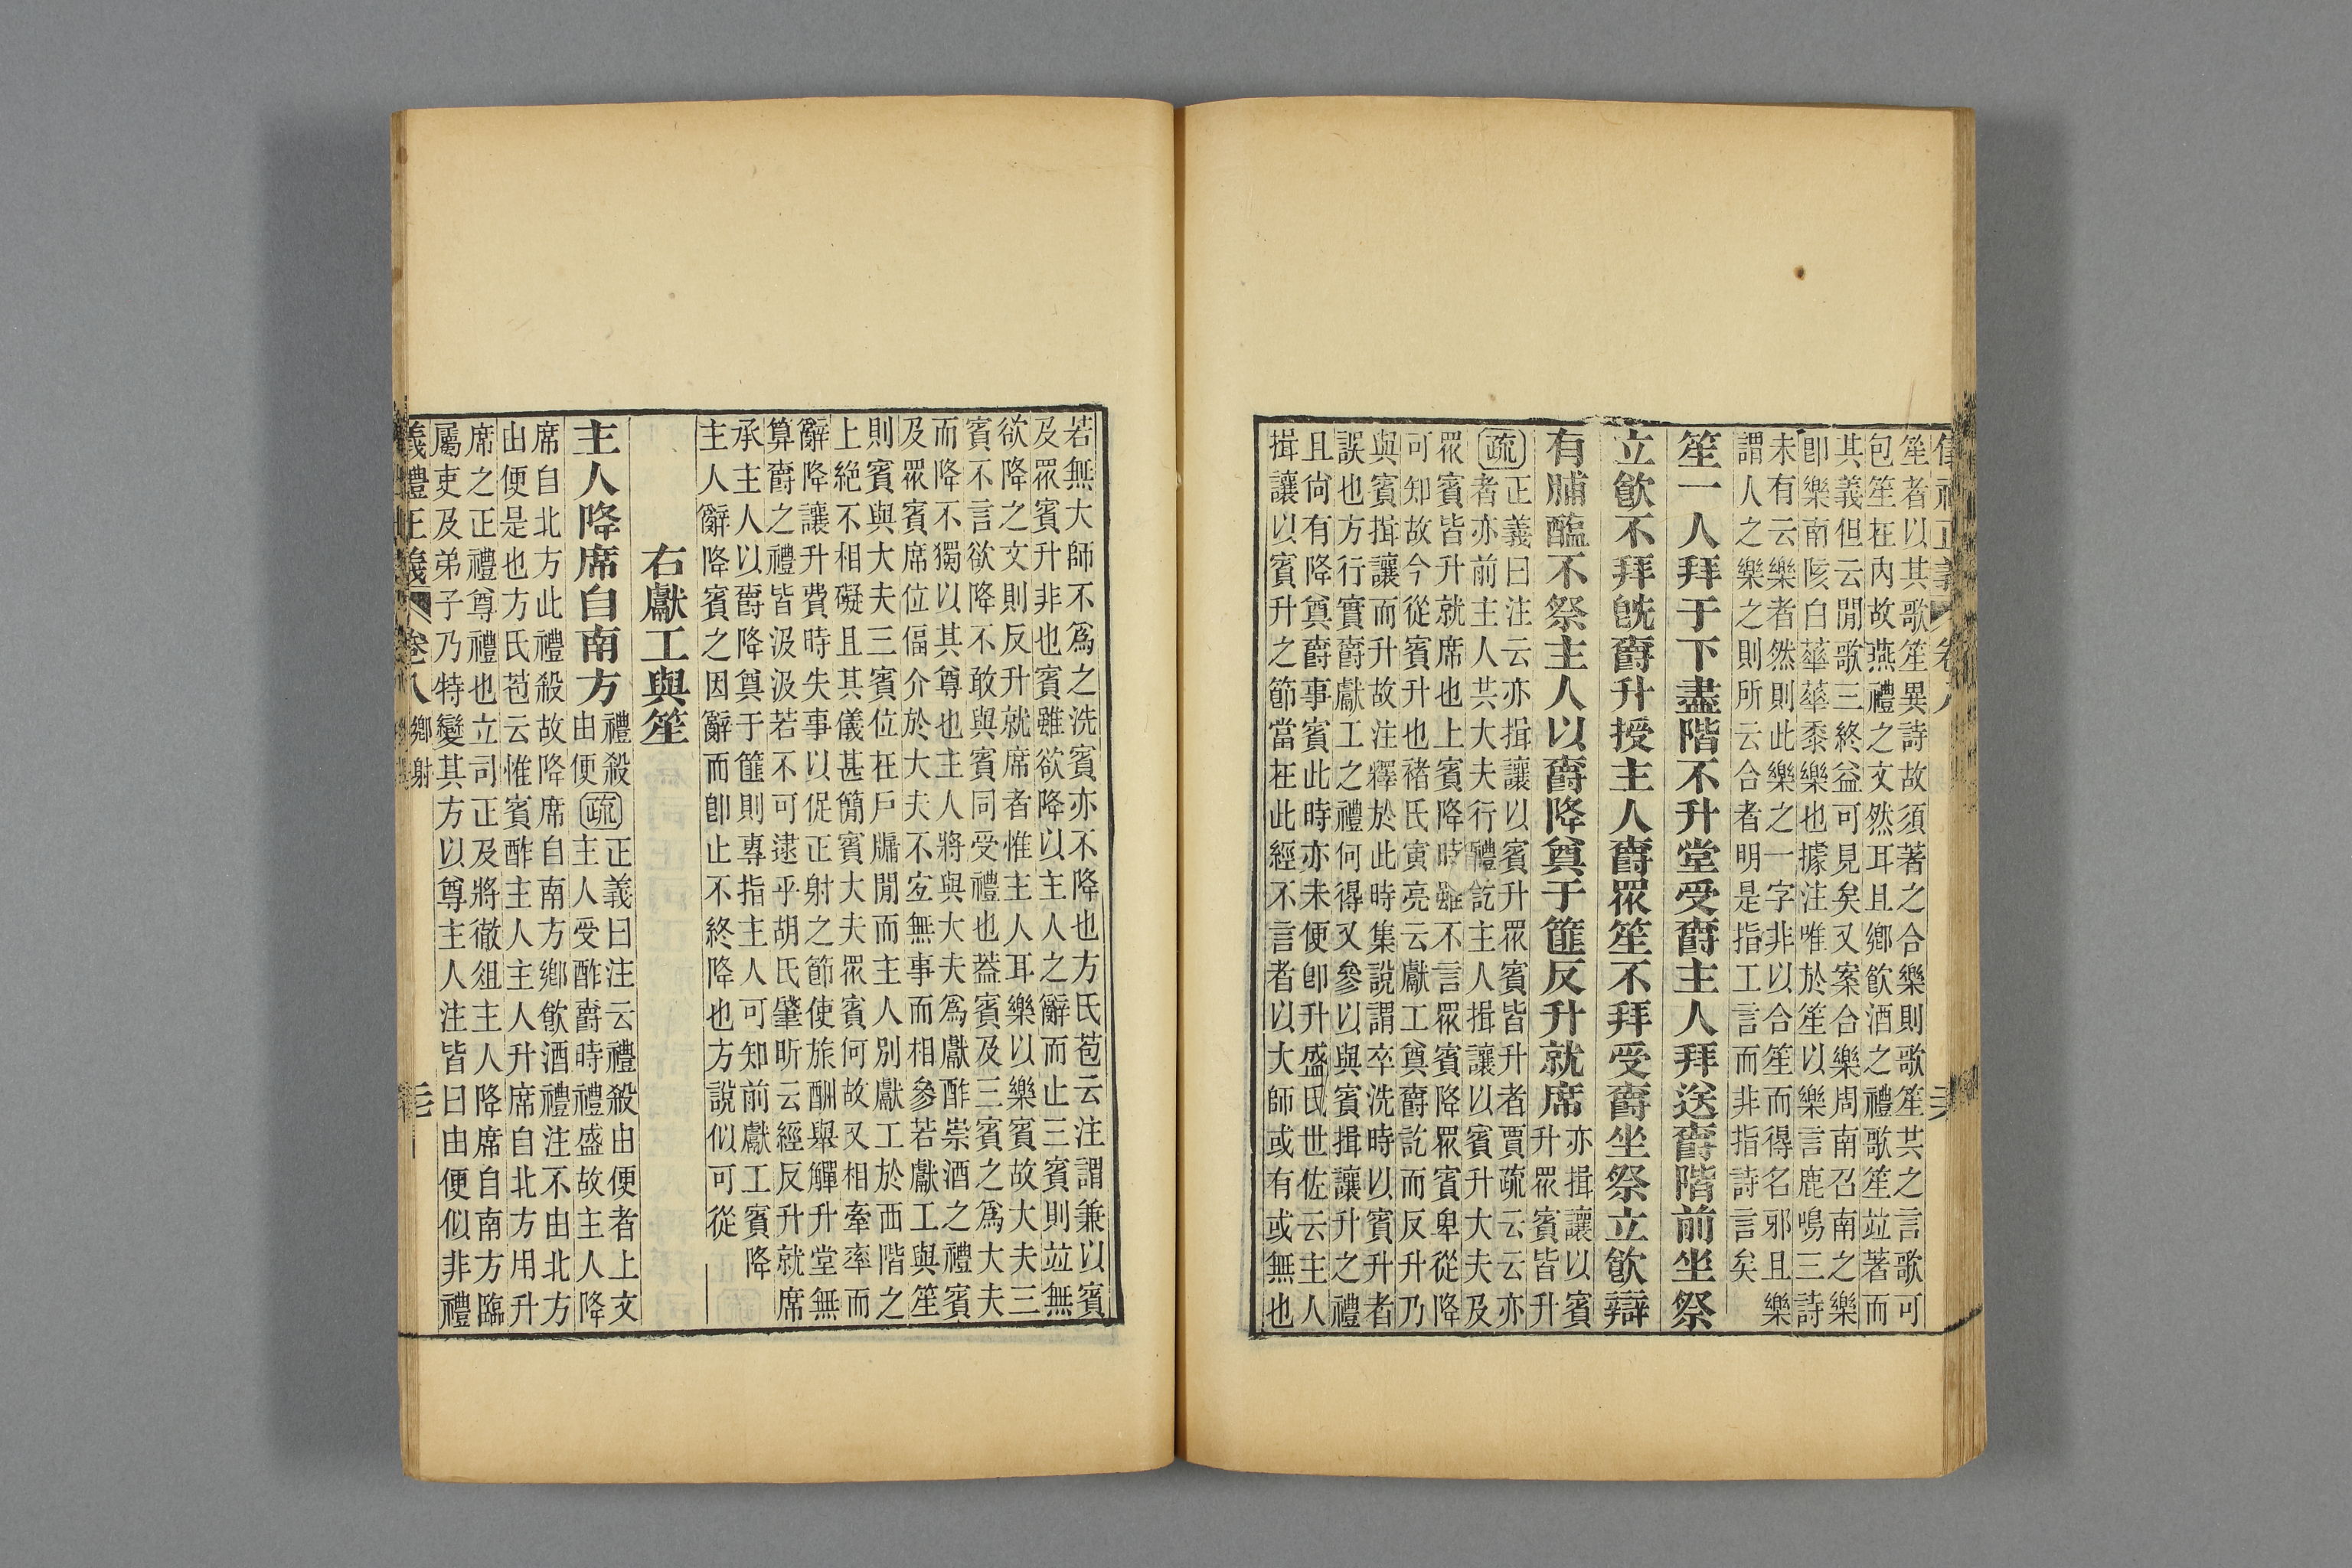 儀禮正義 卷八
笙者以其歌笙異詩故須著之合樂則歌笙共之言歌可
包笙在內故燕禮之文然耳且鄉飮酒之禮歌笙竝著而
其義但云閒歌三終益可見矣又案合樂周南召南之樂
卽樂南陔白華華黍樂也據注唯於笙以樂言鹿鳴三詩
未有云樂者然則此樂之一字非以合笙而得名邪且樂
謂人之樂之則所云合者明是指工言而非指詩言矣
笙一人拜于下盡階不升堂受爵主人拜送爵階前坐祭
立飮不拜旣爵升授主人爵眾笙不拜受爵坐祭立飮辯
有脯醢不祭主人以爵降奠于篚反升就席
亦揖讓以賓
升眾賓皆升
疏正義曰注云亦揖讓以賓升眾賓皆升者賈疏云云亦
者亦前主人共大夫行禮訖主人揖讓以賓升大夫及
眾賓皆升就席也上賓降時雖不言眾賓降眾賓卑從降
可知故今從賓升也褚氏寅亮云獻工奠爵訖而反升乃
與賓揖讓而升故注釋於此時集說謂卒洗時以賓升者
誤也方行實爵獻工之禮何得又參以與賓揖讓升之禮
且尙有降奠爵事賓此時亦未便卽升盛氏世佐云主人
揖讓以賓升之節當在此經不言者以大師或有或無也
若無大師不爲之洗賓亦不降也方氏苞云注謂兼以賓
及眾賓升非也賓雖欲降以主人之辭而止三賓則竝無
欲降之文則反升就席者惟主人耳樂以樂賓故大夫三
賓不言欲降不敢與賓同受禮也葢賓及三賓之爲大夫
而降不獨以其尊也主人將與大夫爲獻酢崇酒之禮賓
及眾賓席位偪介於大夫不宐無事而相參若獻工與笙
則賓與大夫三賓位在戶牖閒而主人別獻工於西階之
上絶不相礙且其儀甚簡賓大夫眾賓何故又相牽率而
辭降讓升費時失事以促正射之節使旅酬舉觶升堂無
算爵之禮皆汲汲若不可逮乎胡氏肇昕云經反升就席
承主人以爵降奠于篚則專指主人可知前獻工賓降
主人辭降賓之因辭而卽止不終降也方說似可從
右獻工與笙
主人降席自南方
禮殺
由便
疏正義曰注云禮殺由便者上文
主人受酢爵時禮盛故主人降
席自北方此禮殺故降席自南方鄉飮酒禮注不由北方
由便是也方氏苞云惟賓酢主人主人升席自北方用升
席之正禮尊禮也立司正及將徹俎主人降席自南方臨
屬吏及弟子乃特變其方以尊主人注皆曰由便似非禮
儀禮正義 卷八 鄉射